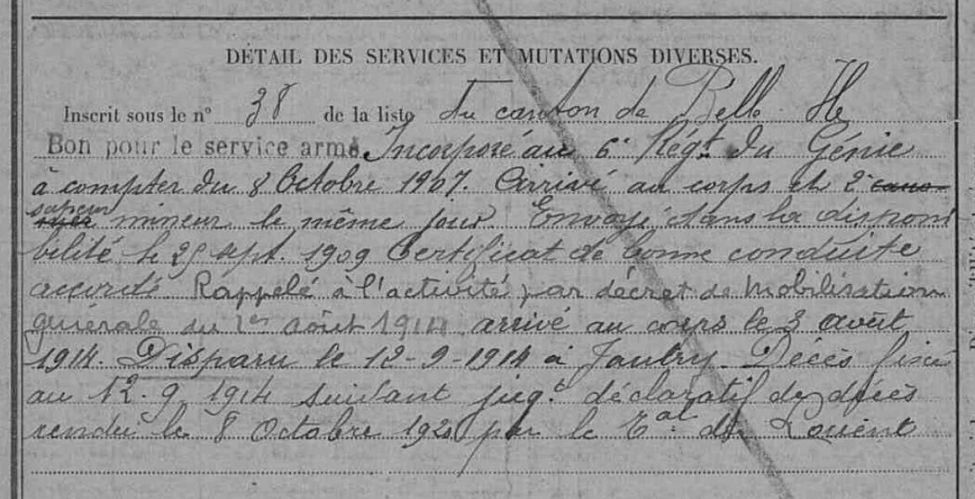 DÉTAIL DES SERVICES ET MUTATIONS DIVERSES.
Inscrit sous le n° 38 de la liste du canton de Belle Ile
Bon pour le service armé Incorporé au 6e Régt du Génie
à compter du 8 Octobre 1907. Arrivé au corps et 2e
sapeur
mineur le même jour Envoyé dans la disponi
bilité le 25 sept. 1909 Certificat de bonne conduite
accordé Rappelé à l'activité par décret de mobilisation
générale du 1er août 1914 arrivé au corps le 3 août
1914. Disparu le 12-9-1914 à Jaulry. Décès fixé
au 12.9.1914 suivant jugt déclaratif de décès
rendu le 8 Octobre 1920 par le Tal de Lorient